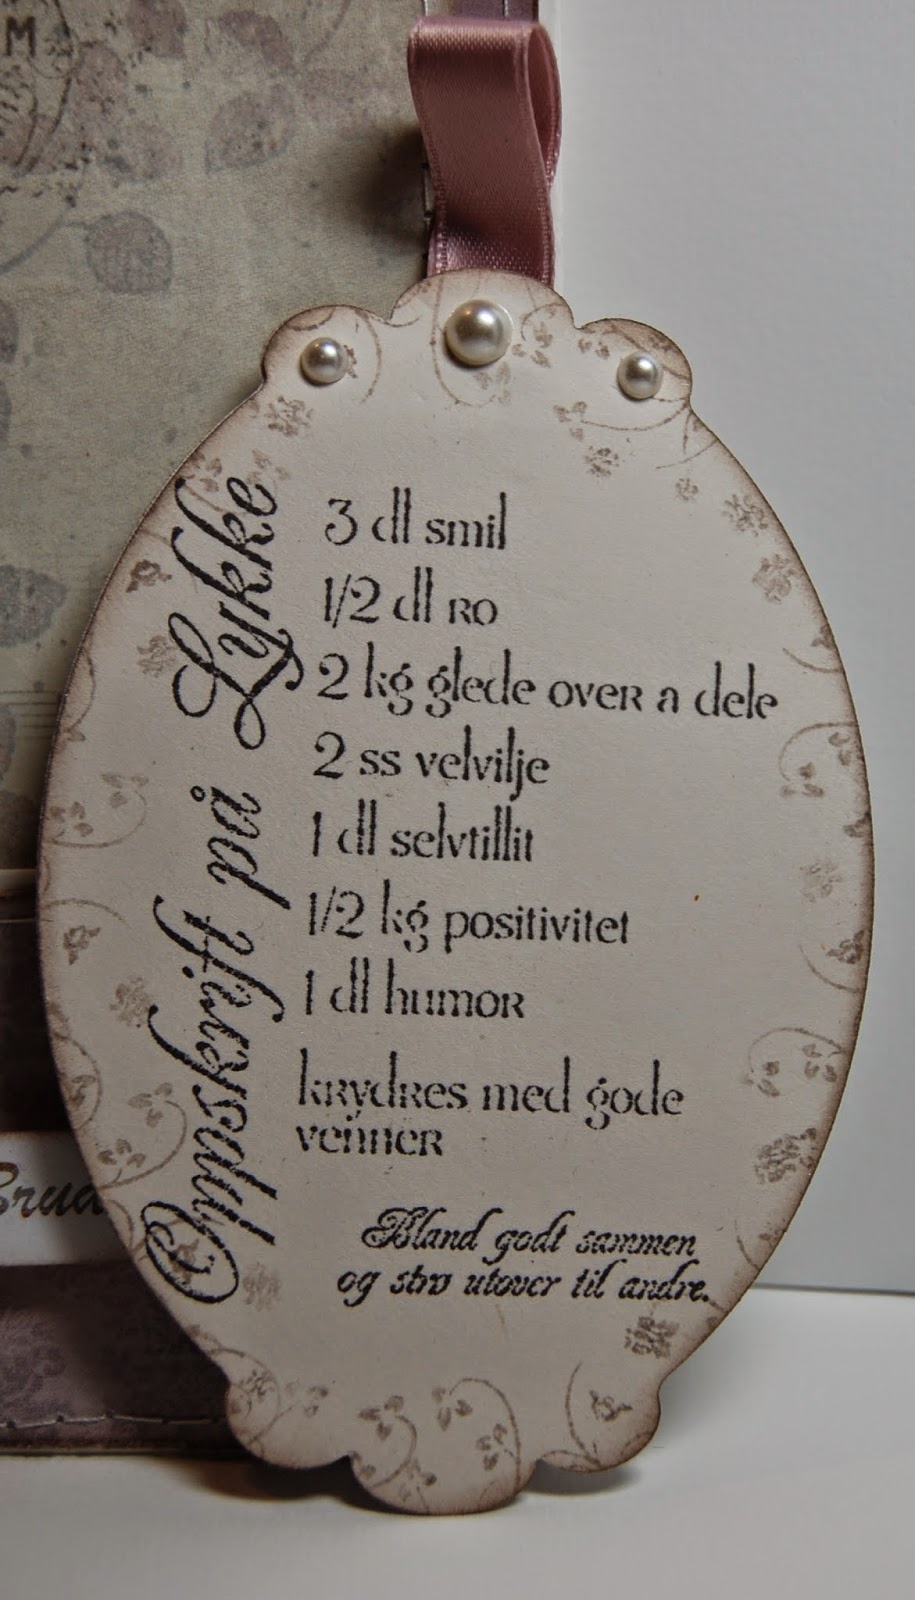 M
Oppskrift på Lykke
3 dl smil
1/2 dl ro
2 kg glede over a dele
2 ss velvilje
1 dl selvtillit
1/2 kg positivitet
1 dl humor
krydres med gode
venner
Bland godt sammen
og strø utover til andre.
Brud